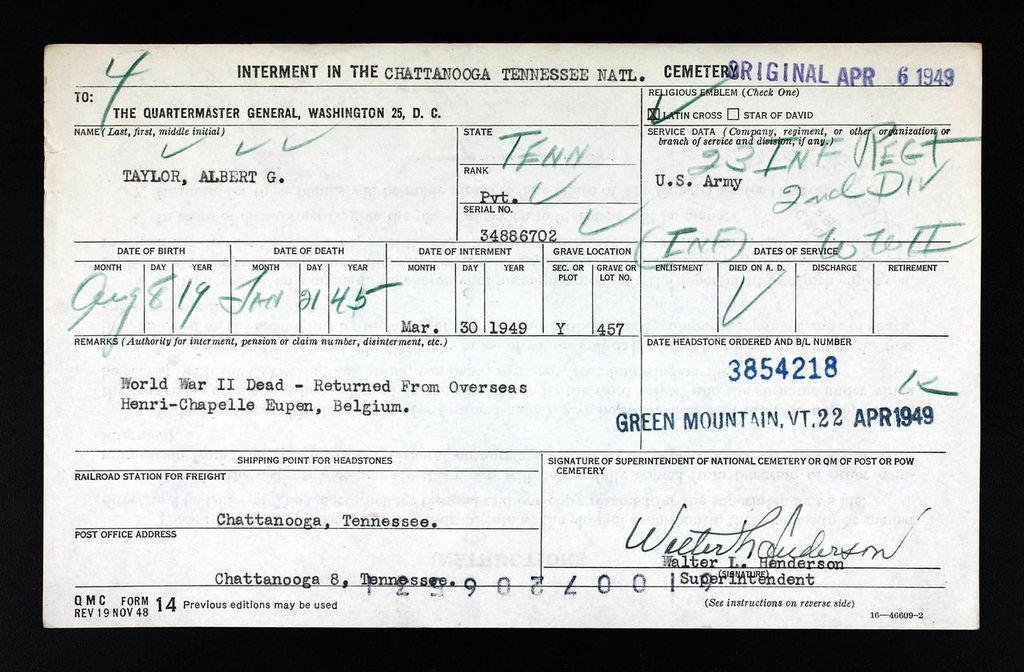 4
INTERMENT IN THE CHATTANOOGA TENNESSEE NATL. CEMETERY
ORIGINAL APR 6 1949
TO:
THE QUARTERMASTER GENERAL, WASHINGTON 25, D. C.
RELIGIOUS EMBLEM (Check One)
X LATIN CROSS STAR OF DAVID
NAME (Last, first, middle initial)
TAYLOR, ALBERT G.
STATE
TENN
RANK
Pvt.
SERIAL NO.
34886702
SERVICE DATA (Company, regiment, or other organization or branch of service and division, if any.)
U.S. Army
23 INF REGT
2nd DIV
(INF) WWII
DATE OF BIRTH
MONTH DAY YEAR
Aug 8 19
DATE OF DEATH
MONTH DAY YEAR
JAN 21 45
DATE OF INTERMENT
MONTH DAY YEAR
Mar. 30 1949
GRAVE LOCATION
SEC. OR PLOT GRAVE OR LOT NO.
Y 457
DATES OF SERVICE
ENLISTMENT DIED ON A. D. DISCHARGE RETIREMENT
REMARKS (Authority for interment, pension or claim number, disinterment, etc.)
World War II Dead - Returned From Overseas
Henri-Chapelle Eupen, Belgium.
DATE HEADSTONE ORDERED AND B/L NUMBER
3854218
GREEN MOUNTAIN, VT. 22 APR 1949
SHIPPING POINT FOR HEADSTONES
RAILROAD STATION FOR FREIGHT
Chattanooga, Tennessee.
POST OFFICE ADDRESS
Chattanooga 8, Tennessee.
SIGNATURE OF SUPERINTENDENT OF NATIONAL CEMETERY OR QM OF POST OR POW CEMETERY
Walter L. Henderson
Walter L. Henderson
(SIGNATURE)
Superintendent
QMC FORM 14 Previous editions may be used
REV 19 NOV 48
(See instructions on reverse side)
16—46609-2